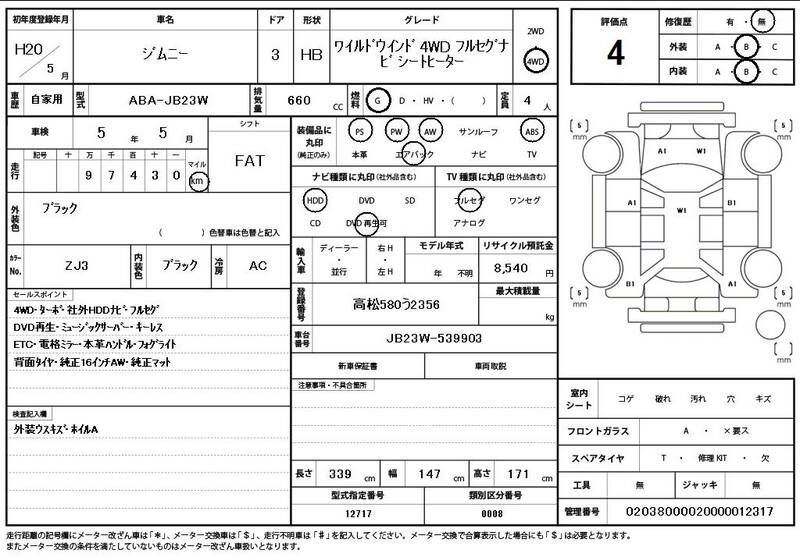 初年度登録年月 車名 ドア 形状 グレード 評価点 修復歴 有 ・ 無
H20 / 5 月 ジムニー 3 HB ワイルドウインド 4WD フルセグナビ シートヒーター 2WD ・ 4WD 4 外装 A ・ B ・ C
内装 A ・ B ・ C
車歴 自家用 型式 ABA-JB23W 排気量 660 CC 燃料 G ・ D ・ HV ・ ( ) 定員 4 人
車検 5 年 5 月 シフト FAT
装備品に丸印 (純正のみ) PS PW AW サンルーフ ABS
本革 エアバック ナビ TV
走行 記号 十 万 千 百 十 一 マイル
9 7 4 3 0 km
ナビ種類に丸印(社外品含む) TV 種類に丸印(社外品含む)
HDD DVD SD フルセグ ワンセグ
CD DVD 再生可 アナログ
外装色 ブラック
( ) 色替車は色替と記入
カラーNo. ZJ3 内装色 ブラック 冷房 AC
輸入車 ディーラー ・ 並行 右 H ・ 左 H モデル年式 年 不明 リサイクル預託金 8,540 円
登録番号 高松580う2356 最大積載量 kg
車台番号 JB23W-539903
新車保証書 車両取説
注意事項・不具合箇所
セールスポイント
4WD・ターボ・社外HDDナビ・フルセグ
DVD再生・ミュージックサーバー・キーレス
ETC・電格ミラー・本革ハンドル・フォグライト
背面タイヤ・純正16インチAW・純正マット
検査記入欄
外装ウスキズ・ホイルA
長さ 339 cm 幅 147 cm 高さ 171 cm
型式指定番号 類別区分番号
12717 0008
[ 5 ] mm [ 5 ] mm
A1 W1
A1 W1 B1
B1 A1
[ 5 ] mm [ 5 ] mm
[ ] mm
室内シート コゲ 破れ 汚れ 穴 キズ
フロントガラス A ・ ×要ス
スペアタイヤ T ・ 修理 KIT ・ 欠
工具 無 ジャッキ 無
管理番号 02038000020000012317
走行距離の記号欄にメーター改ざん車は「*」、メーター交換車は「$」、走行不明車は「#」を記入してください。メーター交換で合算表示した場合にも「$」は必要となります。
またメーター交換の条件を満たしていないものはメーター改ざん車扱いとなります。